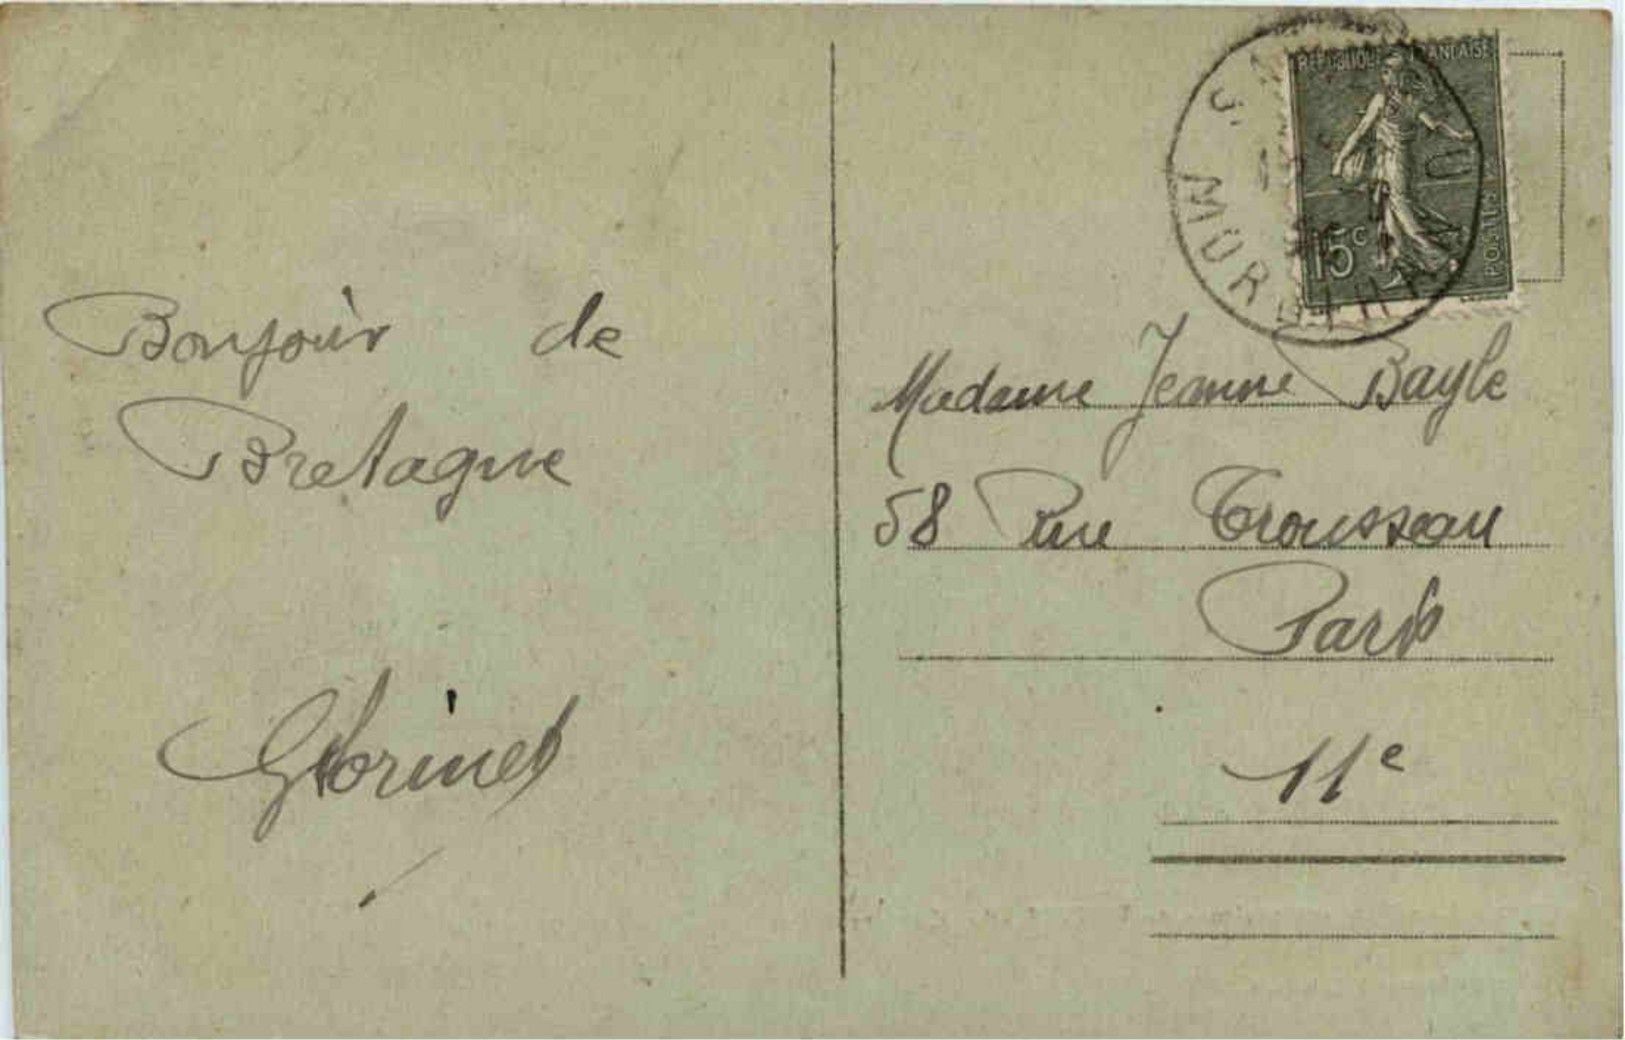 Bonjour de
Bretagne
REPUBLIQUE FRANÇAISE
15c
POSTES
MORBIHAN
Madame Jeanne Bayle
58 Rue Trousseau
Paris
11e